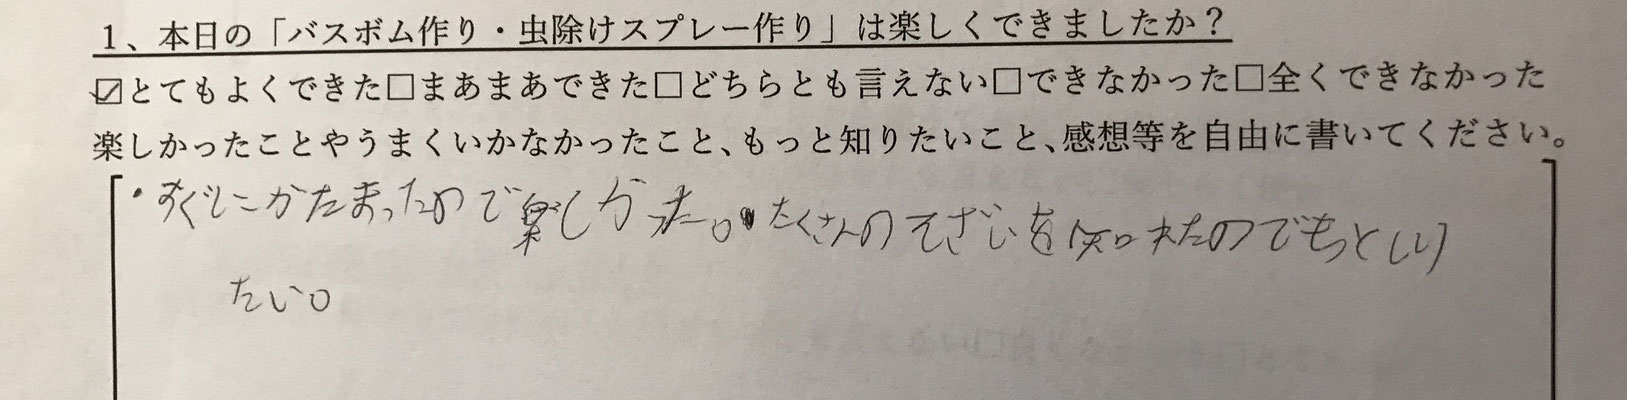 1、本日の「バスボム作り・虫除けスプレー作り」は楽しくできましたか？
☑とてもよくできた□まあまあできた□どちらとも言えない□できなかった□全くできなかった
楽しかったことやうまくいかなかったこと、もっと知りたいこと、感想等を自由に書いてください。
・すぐにかたまったので楽しかった。・たくさんのそざいを知れたのでもっとしり
たい。